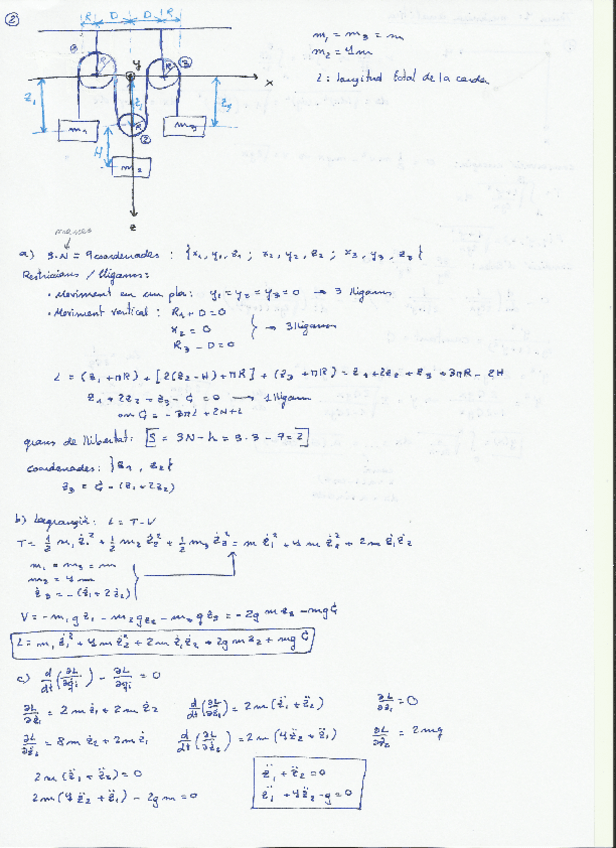 ②
R D D R
m₁ = m₃ = m
m₂ = 4m
L: longitud total de la corda
R R ③
y x
z₁ z₃
R ②
m₁ m₃
H
m₂
z
masses
a) 3·N = 9 coordenades : {x₁, y₁, z₁ ; x₂, y₂, z₂ ; x₃, y₃, z₃}
Restriccions / lligams:
• Moviment en un pla: y₁ = y₂ = y₃ = 0 → 3 lligams
• Moviment vertical : R₁ + D = 0
x₂ = 0 } → 3 lligams
R₃ - D = 0
L = (z₁ + πR) + [2(z₂ - H) + πR] + (z₃ + πR) = z₁ + 2z₂ + z₃ + 3πR - 2H
→ 1 lligam
graus de llibertat: [S = 3N - k = 3·3 - 7 = 2]
coordenades: {z₁, z₂}
z₃ = C - (z₁ + 2z₂)
b) Lagrangià: L = T - V
T = ½ m₁ ż₁² + ½ m₂ ż₂² + ½ m₃ ż₃² = m ż₁² + 4m ż₂² + 2m ż₁ż₂
m₁ = m₃ = m
m₂ = 4m
ż₃ = -(ż₁ + 2ż₂)
V = -m₁gz₁ - m₂gz₂ - m₃gz₃ = -2gmz₂ - mgC
L = m ż₁² + 4m ż₂² + 2m ż₁ż₂ + 2gmz₂ + mgC
c) d/dt (∂L/∂q̇ᵢ) - ∂L/∂qᵢ = 0
∂L/∂ż₁ = 2m ż₁ + 2m ż₂ d/dt (∂L/∂ż₁) = 2m (z̈₁ + z̈₂) ∂L/∂z₁ = 0
∂L/∂ż₂ = 8m ż₂ + 2m ż₁ d/dt (∂L/∂ż₂) = 2m (4z̈₂ + z̈₁) ∂L/∂z₂ = 2mg
2m (z̈₁ + z̈₂) = 0 z̈₁ + z̈₂ = 0
2m (4z̈₂ + z̈₁) - 2gm = 0 z̈₁ + 4z̈₂ - g = 0